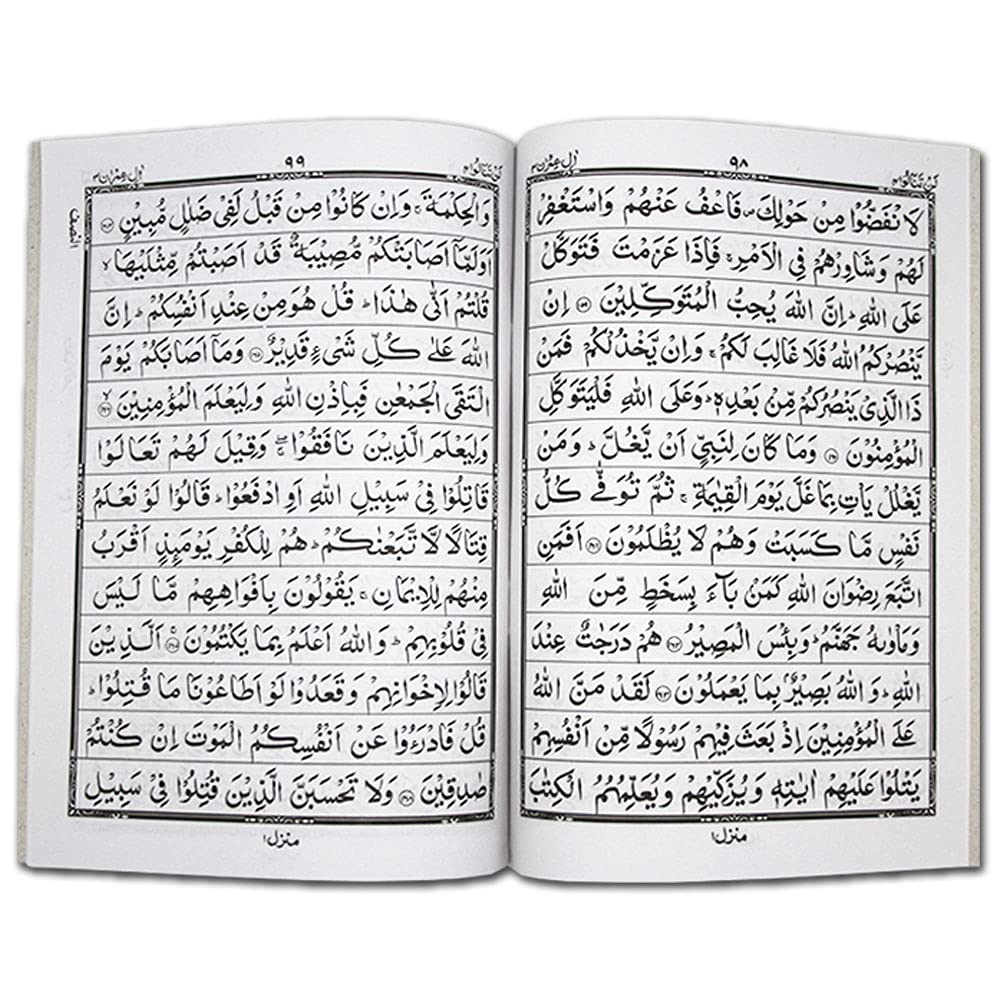 لن تنالوا ۴
۹۸
اٰل عمرٰن ۳
لَا نْفَضُّوْا مِنْ حَوْلِكَ ۪ فَاعْفُ عَنْهُمْ وَاسْتَغْفِرْ
لَهُمْ وَشَاوِرْهُمْ فِي الْاَمْرِ ۚ فَاِذَا عَزَمْتَ فَتَوَكَّلْ
عَلَى اللّٰهِ ؕ اِنَّ اللّٰهَ يُحِبُّ الْمُتَوَكِّلِيْنَ ﴿۱۵۹﴾ اِنْ
يَّنْصُرْكُمُ اللّٰهُ فَلَا غَالِبَ لَكُمْ ۚ وَاِنْ يَّخْذُلْكُمْ فَمَنْ
ذَا الَّذِيْ يَنْصُرُكُمْ مِّنْۢ بَعْدِهٖ ؕ وَعَلَى اللّٰهِ فَلْيَتَوَكَّلِ
الْمُؤْمِنُوْنَ ﴿۱۶۰﴾ وَمَا كَانَ لِنَبِيٍّ اَنْ يَّغُلَّ ؕ وَمَنْ
يَّغْلُلْ يَاْتِ بِمَا غَلَّ يَوْمَ الْقِيٰمَةِ ۚ ثُمَّ تُوَفّٰى كُلُّ
نَفْسٍ مَّا كَسَبَتْ وَهُمْ لَا يُظْلَمُوْنَ ﴿۱۶۱﴾ اَفَمَنِ
اتَّبَعَ رِضْوَانَ اللّٰهِ كَمَنْۢ بَآءَ بِسَخَطٍ مِّنَ اللّٰهِ
وَمَاْوٰىهُ جَهَنَّمُ ؕ وَبِئْسَ الْمَصِيْرُ ﴿۱۶۲﴾ هُمْ دَرَجٰتٌ عِنْدَ
اللّٰهِ ؕ وَاللّٰهُ بَصِيْرٌۢ بِمَا يَعْمَلُوْنَ ﴿۱۶۳﴾ لَقَدْ مَنَّ اللّٰهُ
عَلَى الْمُؤْمِنِيْنَ اِذْ بَعَثَ فِيْهِمْ رَسُوْلًا مِّنْ اَنْفُسِهِمْ
يَتْلُوْا عَلَيْهِمْ اٰيٰتِهٖ وَيُزَكِّيْهِمْ وَيُعَلِّمُهُمُ الْكِتٰبَ
منزل ۱
لن تنالوا ۴
۹۹
اٰل عمرٰن ۳
وَالْحِكْمَةَ ۚ وَاِنْ كَانُوْا مِنْ قَبْلُ لَفِيْ ضَلٰلٍ مُّبِيْنٍ ﴿۱۶۴﴾
اَوَلَمَّاۤ اَصَابَتْكُمْ مُّصِيْبَةٌ قَدْ اَصَبْتُمْ مِّثْلَيْهَا ۙ
قُلْتُمْ اَنّٰى هٰذَا ؕ قُلْ هُوَ مِنْ عِنْدِ اَنْفُسِكُمْ ؕ اِنَّ
اللّٰهَ عَلٰى كُلِّ شَيْءٍ قَدِيْرٌ ﴿۱۶۵﴾ وَمَاۤ اَصَابَكُمْ يَوْمَ
الْتَقَى الْجَمْعٰنِ فَبِاِذْنِ اللّٰهِ وَلِيَعْلَمَ الْمُؤْمِنِيْنَ ﴿۱۶۶﴾ ۙ
وَلِيَعْلَمَ الَّذِيْنَ نَافَقُوْا ۖۚ وَقِيْلَ لَهُمْ تَعَالَوْا
قَاتِلُوْا فِيْ سَبِيْلِ اللّٰهِ اَوِ ادْفَعُوْا ؕ قَالُوْا لَوْ نَعْلَمُ
قِتَالًا لَّا تَّبَعْنٰكُمْ ؕ هُمْ لِلْكُفْرِ يَوْمَئِذٍ اَقْرَبُ
مِنْهُمْ لِلْاِيْمَانِ ۚ يَقُوْلُوْنَ بِاَفْوَاهِهِمْ مَّا لَيْسَ
فِيْ قُلُوْبِهِمْ ؕ وَاللّٰهُ اَعْلَمُ بِمَا يَكْتُمُوْنَ ﴿۱۶۷﴾ ۚ اَلَّذِيْنَ
قَالُوْا لِاِخْوَانِهِمْ وَقَعَدُوْا لَوْ اَطَاعُوْنَا مَا قُتِلُوْا ؕ
قُلْ فَادْرَءُوْا عَنْ اَنْفُسِكُمُ الْمَوْتَ اِنْ كُنْتُمْ
صٰدِقِيْنَ ﴿۱۶۸﴾ وَلَا تَحْسَبَنَّ الَّذِيْنَ قُتِلُوْا فِيْ سَبِيْلِ
النصف
منزل ۱